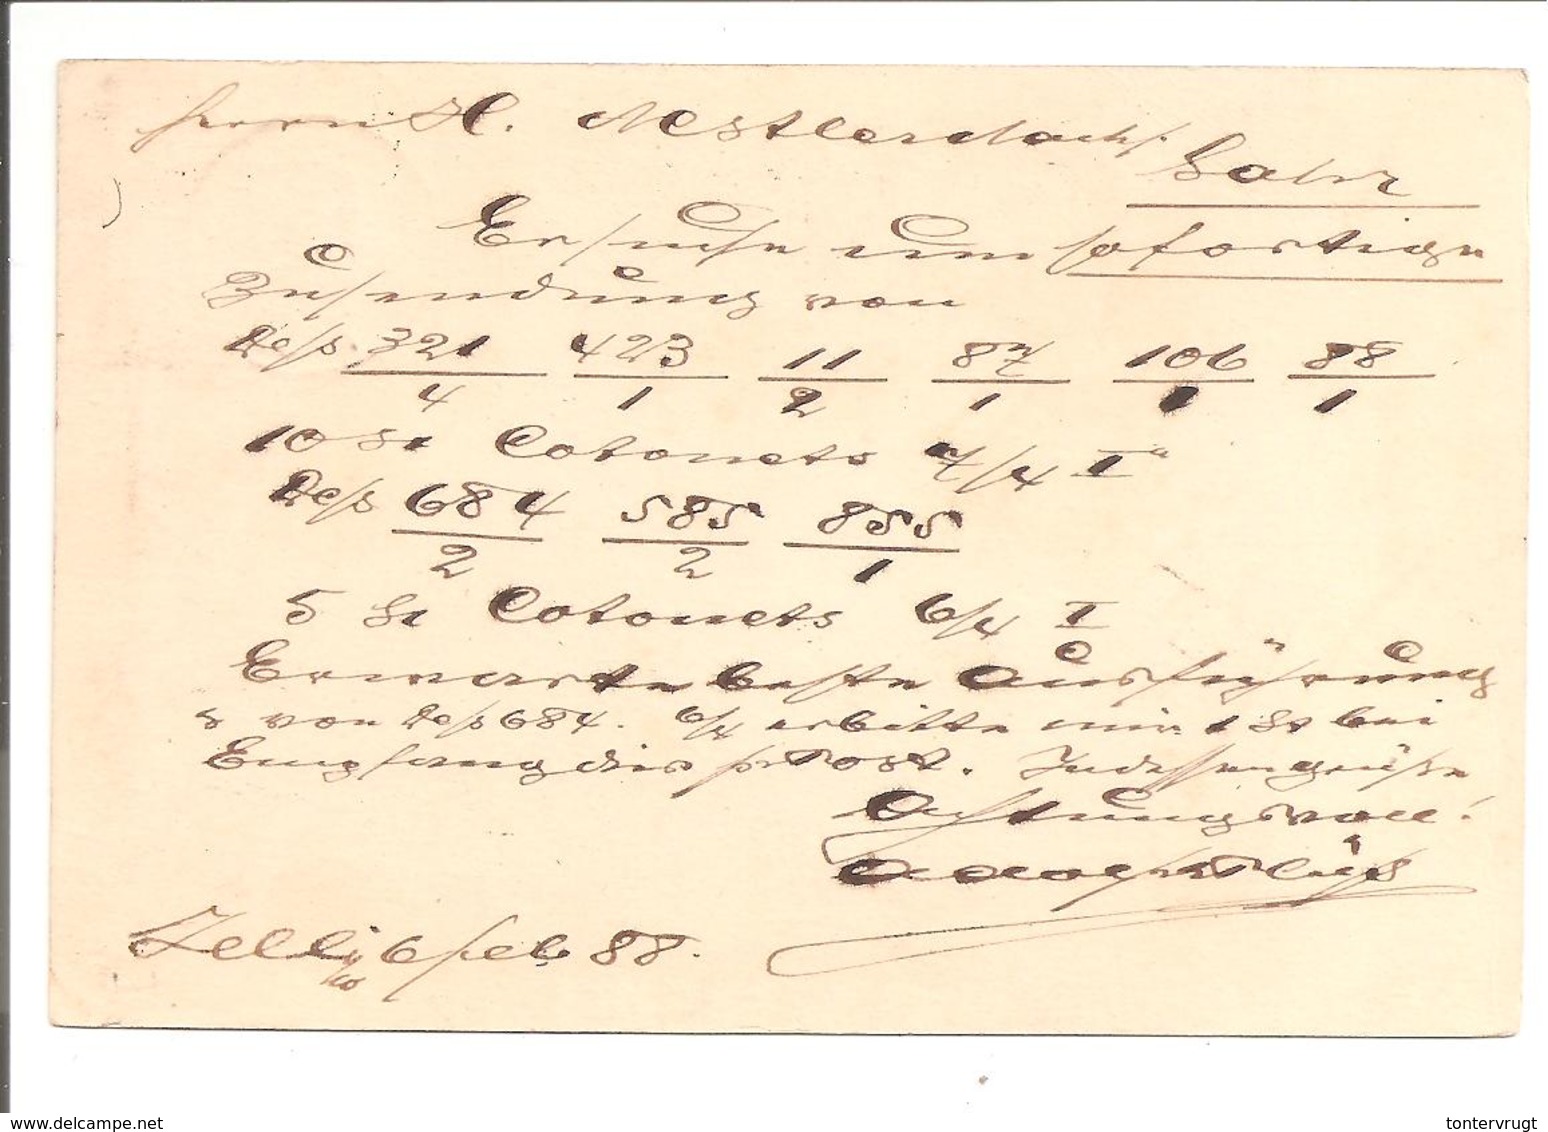 Herrn H. Nestler Nachf.
Lahr
Ersuche um sofortige
Zusendung von
Des. 321/4 423/1 11/2 87/1 106/1 88/1
10 St Cotonets 7/4 I a
Des 684/2 585/2 855/1
5 St Cotonets 6/4 I
Erwarte beste Ausführung
von Des 684. 6/4 erbitte mir 1 St bei
Empfang dis pr Post. Indessen grüße
Achtungsvoll!
Zell i/W 6 Feb 88.
delcampe.net
tontervrugt